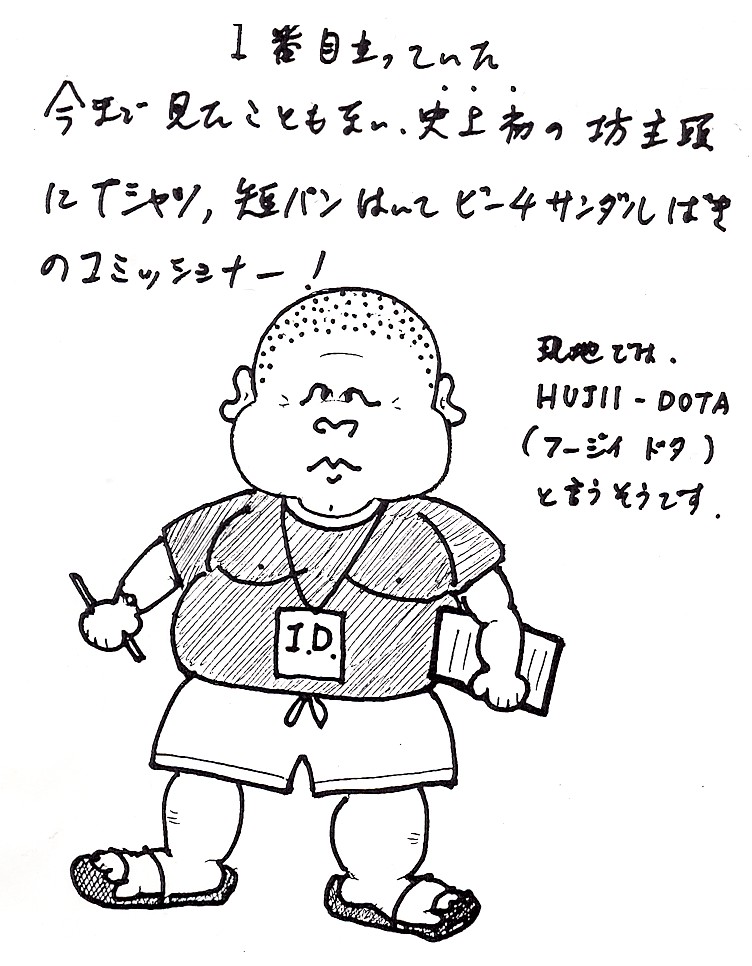 1番目立っていた
今まで見たこともない、史上初の坊主頭
にTシャツ, 短パンはいてビーチサンダルばき
のコミッショナー!
現地では、
HUJII-DOTA
(フージイ ドタ)
と言うそうです.
I.D.